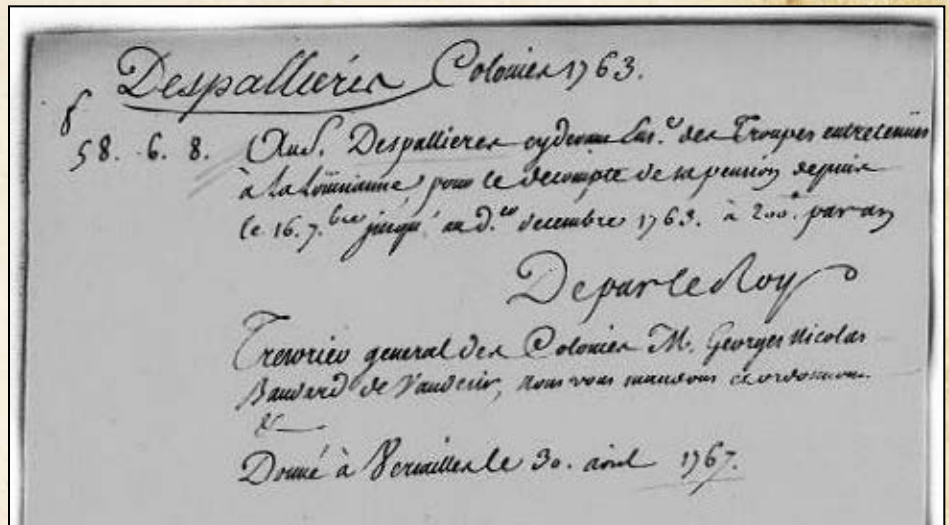 Despallieres Colonies 1763.
₶
58. 6. 8. Au S. Despallieres cydevant Ens.e des Troupes entretenües
à la Loüisianne, pour le decompte de sa pension depuis
le 16. 7.bre jusqu'au d.er decembre 1763. à 200.₶ par an
De par le Roy
Tresorier general des Colonies M. Georges Nicolas
Baudard de Vaudesir, nous vous mandons et ordonnons
&
Donné à Versailles le 30. avril 1767.